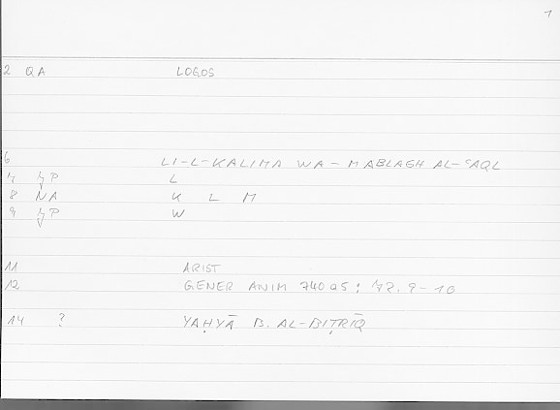 1
2 QA LOGOS
6 LI-L-KALIMA WA-MABLAGH AL-ʿAQL
7 SP L
8 NA K L M
9 SP W
11 ARIST
12 GENER ANIM 740a5: 72.9-10
14 ? YAḤYĀ B. AL-BIṬRĪQ